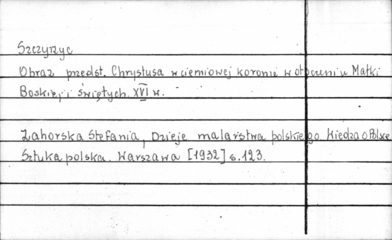 Szczyrzyc
Obraz przedst. Chrystusa w cierniowej koronie w otoczeniu Matki
Boskiej i świętych. XVI w.
Zahorska Stefania, Dzieje malarstwa polskiego. Wiedza o Polsce
Sztuka polska. Warszawa [1932] s. 123.